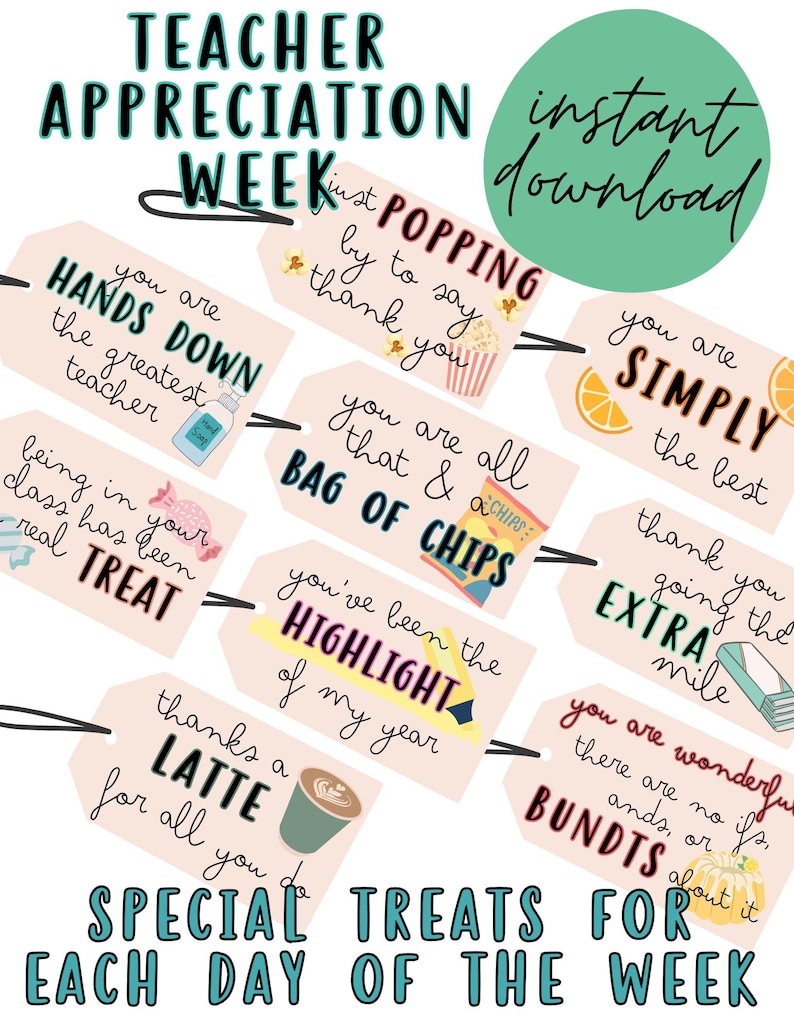 TEACHER
APPRECIATION
WEEK
instant
download
just POPPING
by to say
thank you
you are
HANDS DOWN
the greatest
teacher
Hand
Soap
you are
SIMPLY
the best
you are all
that & a
BAG OF CHIPS
CHIPS
being in your
class has been
real TREAT
thank you
going the
EXTRA
mile
you've been the
HIGHLIGHT
of my year
thanks a
LATTE
for all you do
you are wonderful
there are no ifs,
ands, or
BUNDTS
about it
SPECIAL TREATS FOR
EACH DAY OF THE WEEK